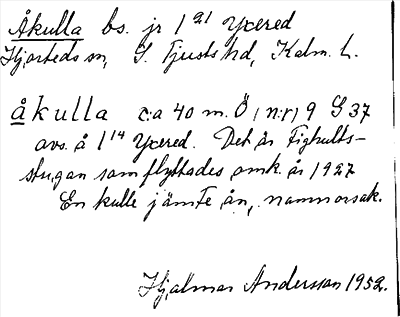 Åkulla bs. jr 1²¹ Yxered
Hjorteds sn, S. Tjusts hd, Kalm. L.
åkulla c:a 40 m. Ö, n:r, 9 S 37
avs. å 1¹⁴ Yxered. Det är Fighults-
stugan som flyttades omk. år 1927
En kulle jämte ån, namnorsak.
Hjalmar Andersson 1952.